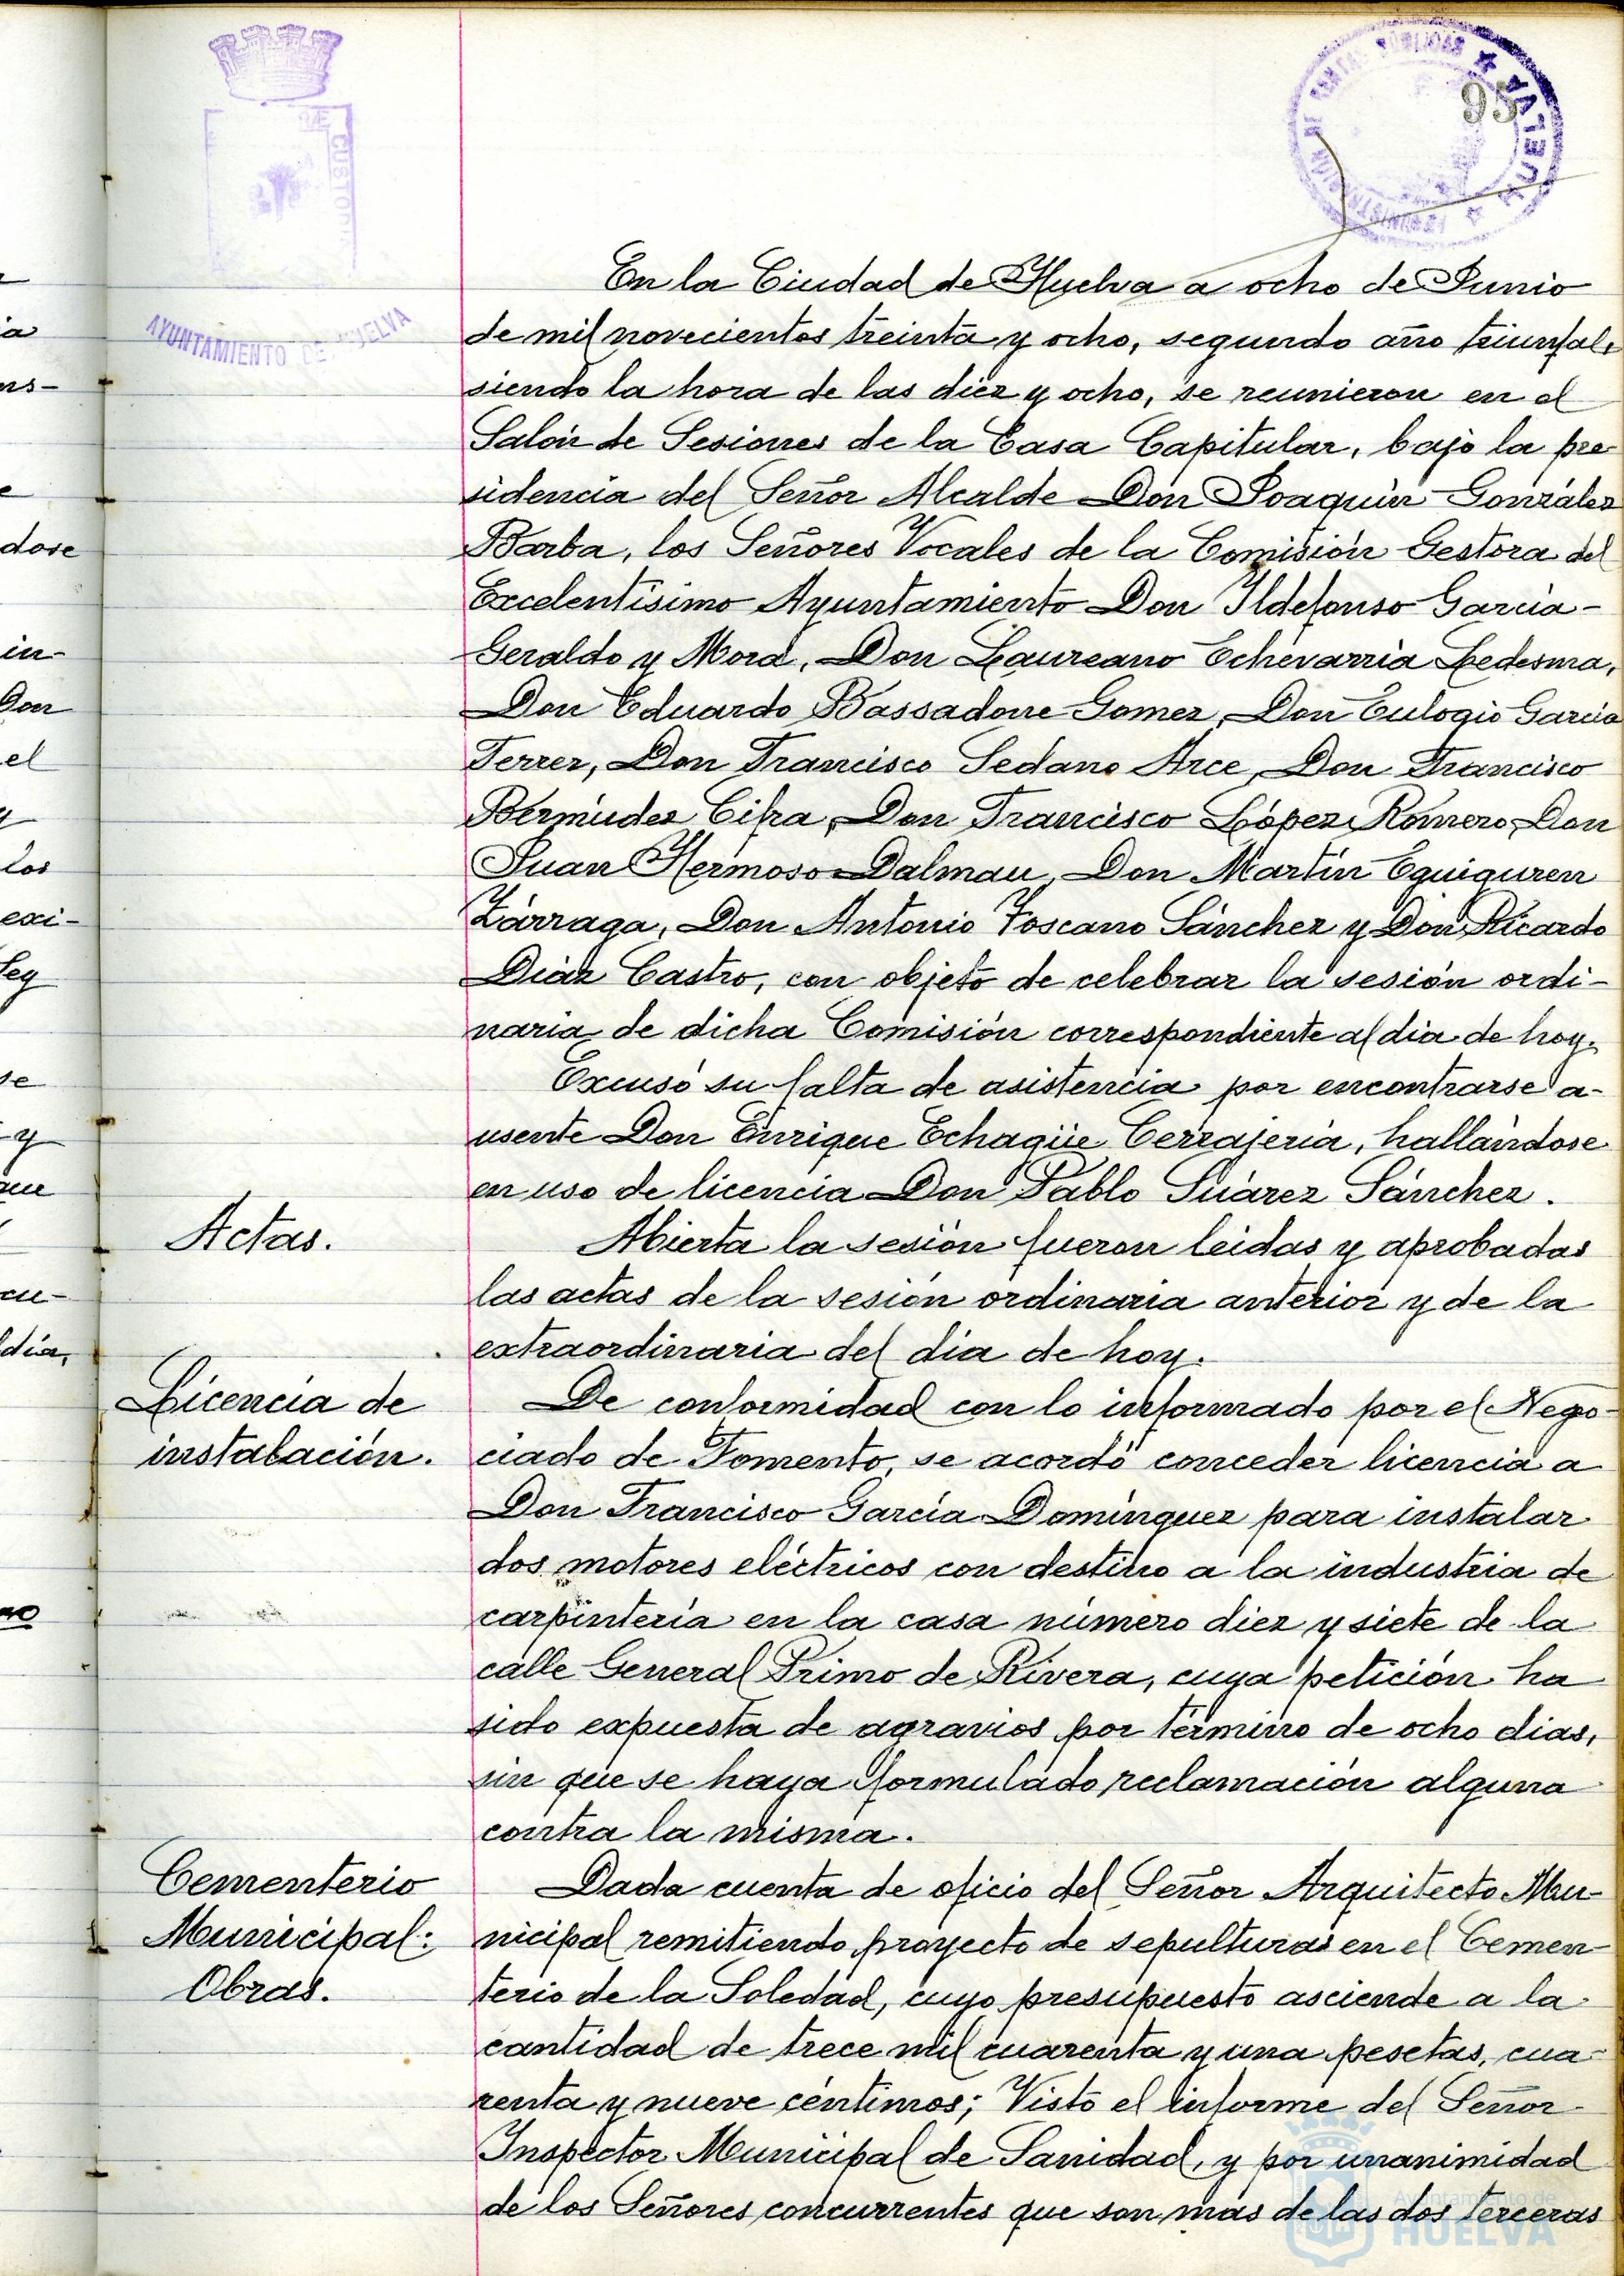 95
AYUNTAMIENTO DE HUELVA
HUELVA
En la Ciudad de Huelva a ocho de Junio
de mil novecientos treinta y ocho, segundo año triunfal,
siendo la hora de las diez y ocho, se reunieron en el
Salón de Sesiones de la Casa Capitular, bajo la pre-
sidencia del Señor Alcalde Don Joaquín González
Barba, los Señores Vocales de la Comisión Gestora del
Excelentísimo Ayuntamiento Don Ildefonso García-
Geraldo y Mora, Don Laureano Echevarría Ledesma,
Don Eduardo Bassadone Gomez, Don Eulogio García
Ferrer, Don Francisco Sedano Arce, Don Francisco
Bérmúdez Cifra, Don Francisco López Romero, Don
Juan Hermoso Dalmau, Don Martín Eguiguren
Zárraga, Don Antonio Toscano Sánchez y Don Ricardo
Díaz Castro, con objeto de celebrar la sesión ordi-
naria de dicha Comisión correspondiente al día de hoy.
Excusó su falta de asistencia por encontrarse a-
usente Don Enrique Echagüe Cerrajería, hallándose
en uso de licencia Don Pablo Suárez Sánchez.
Actas.
Abierta la sesión fueron leidas y aprobadas
las actas de la sesión ordinaria anterior y de la
extraordinaria del dia de hoy.
Licencia de
instalación.
De conformidad con lo informado por el Nego-
ciado de Fomento, se acordó conceder licencia a
Don Francisco García Domínguez para instalar
dos motores eléctricos con destino a la industria de
carpintería en la casa número diez y siete de la
calle General Primo de Rivera, cuya petición ha
sido expuesta de agravios por término de ocho dias,
sin que se haya formulado reclamación alguna
contra la misma.
Cementerio
Municipal:
Obras.
Dada cuenta de oficio del Señor Arquitecto Mu-
nicipal remitiendo proyecto de sepulturas en el Cemen-
terio de la Soledad, cuyo presupuesto asciende a la
cantidad de trece mil cuarenta y una pesetas, cua-
renta y nueve céntimos; Visto el informe del Señor
Inspector Municipal de Sanidad, y por unanimidad
de los Señores concurrentes que son más de las dos terceras
Ayuntamiento de
HUELVA